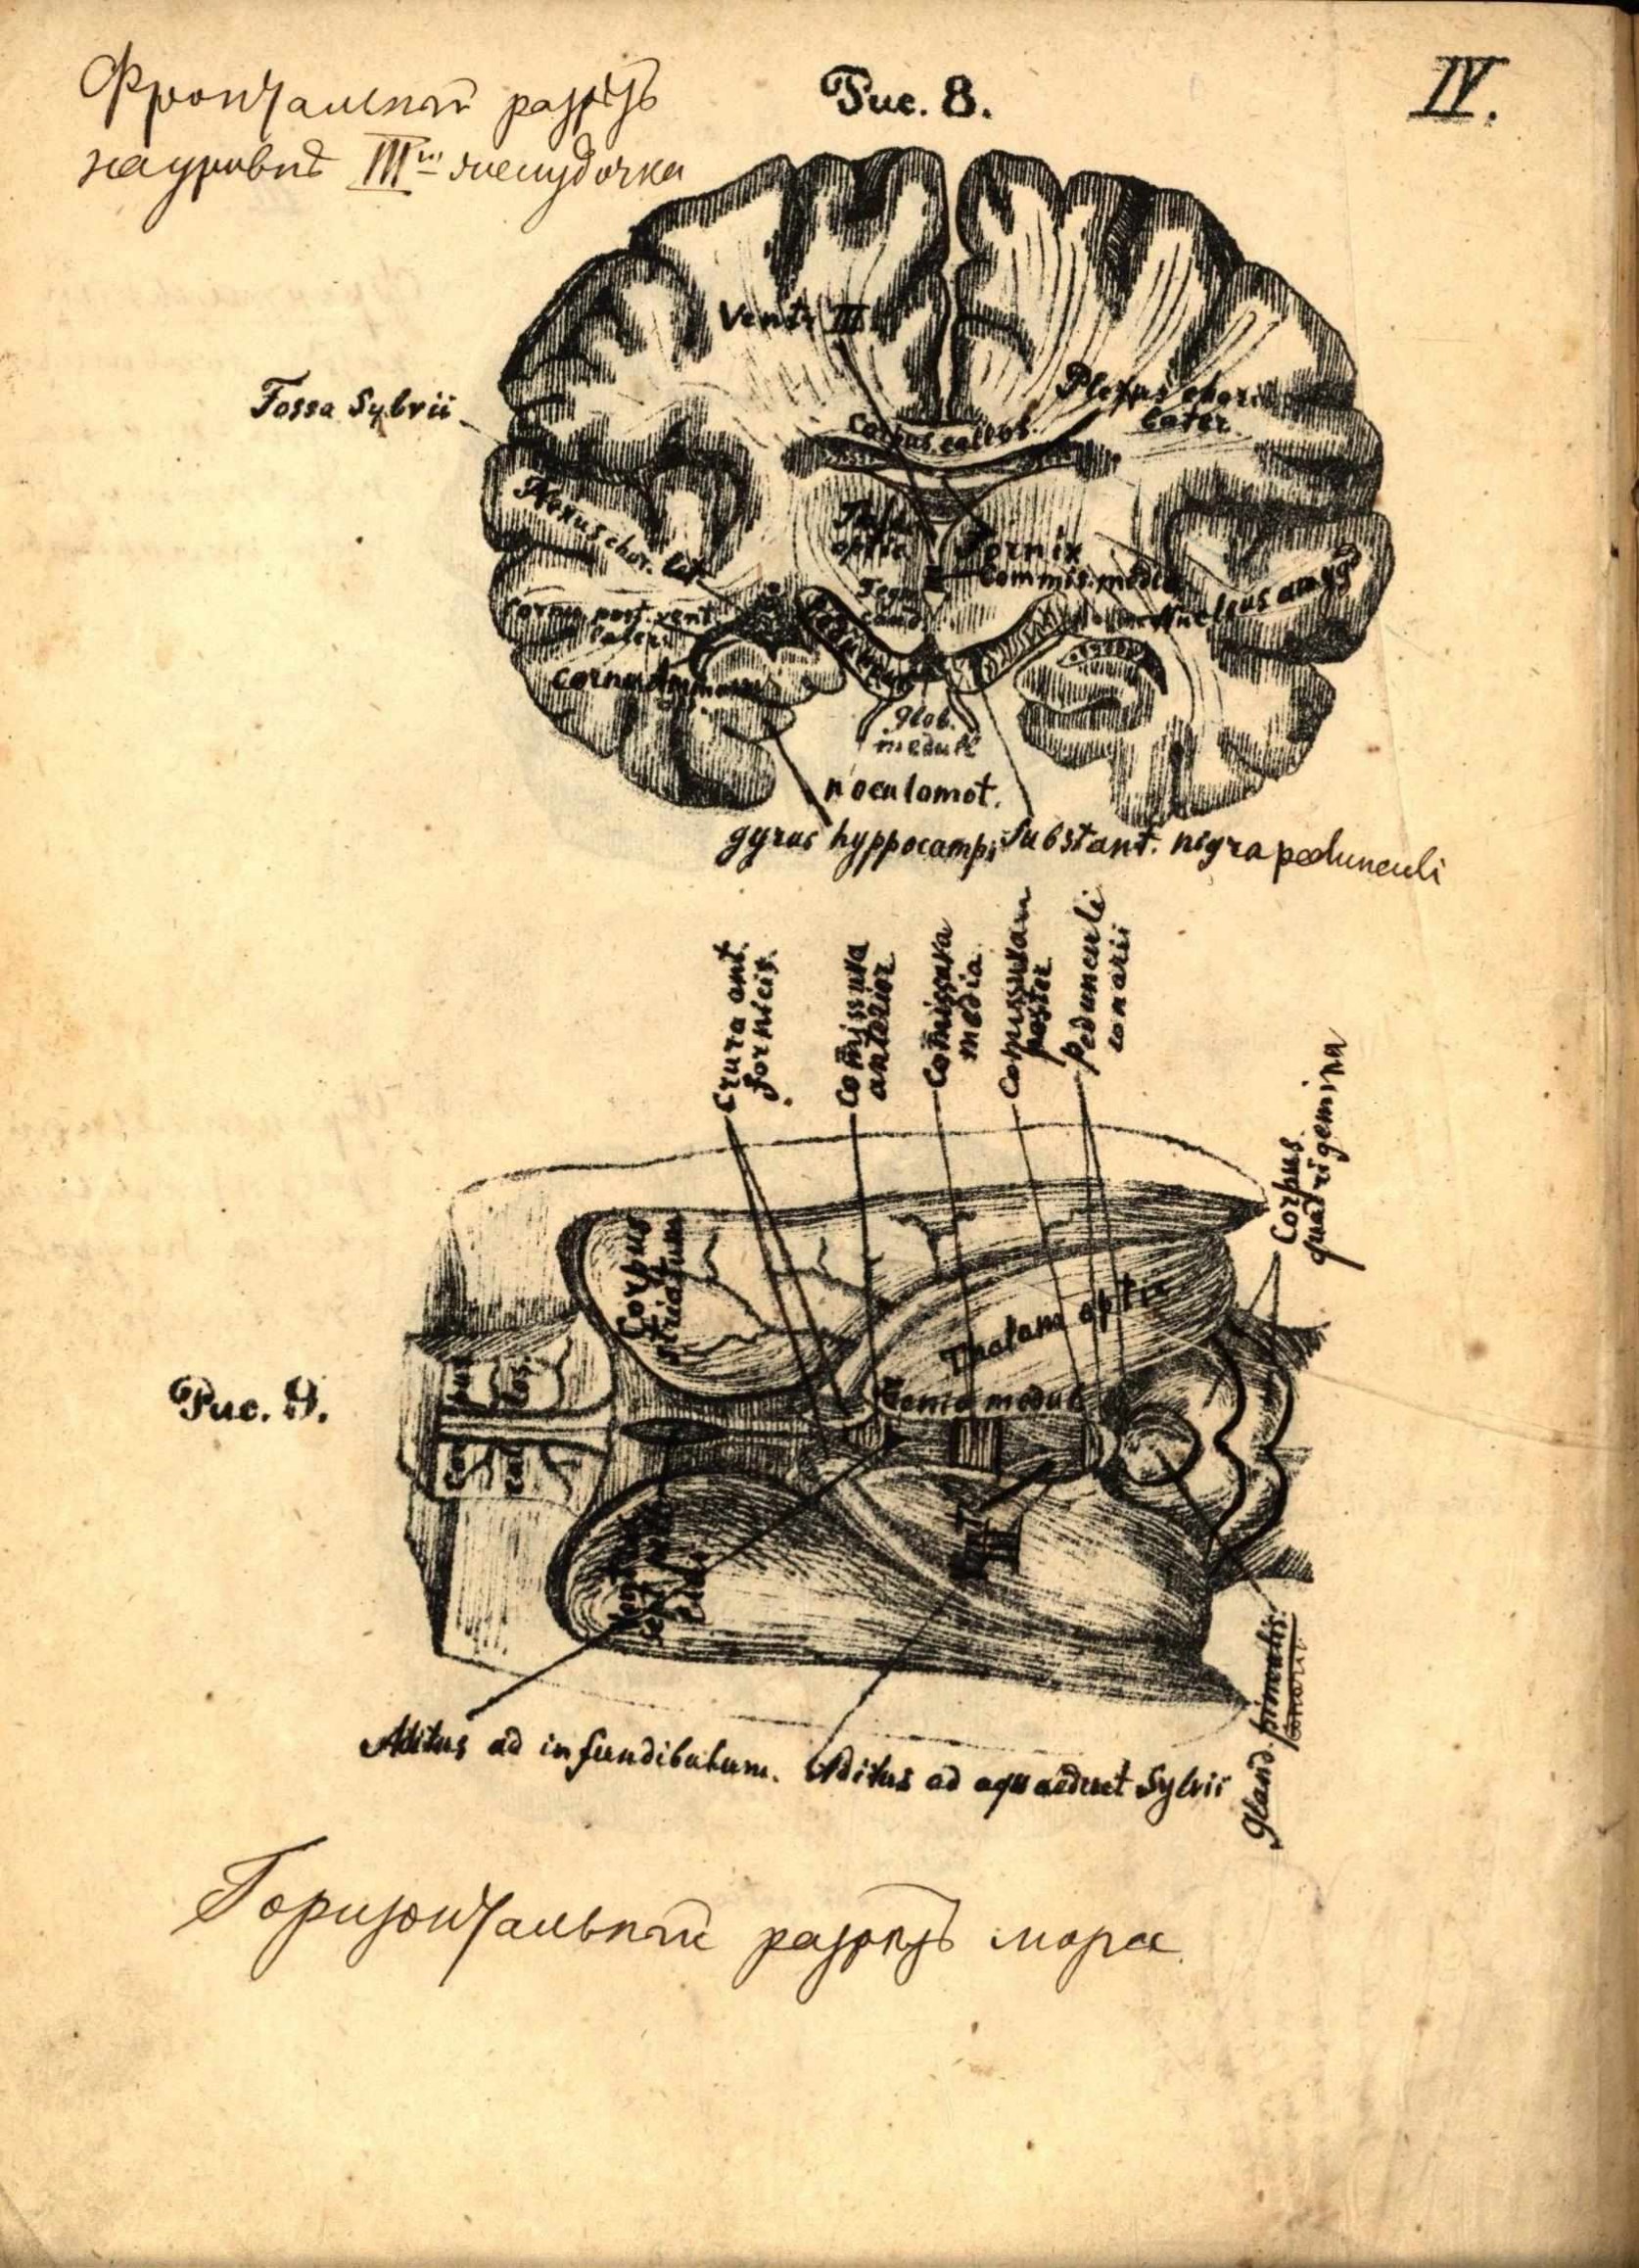 Фронтальный разрѣзъ
на уровнѣ III го желудочка
Рис. 8.
IV.
Ventr III
Fossa Sylvii
Plexus chorid
later
Corpus callos.
Plexus chor. lat
Thal.
optic
Fornix
Commis. media
Tegm
caud.
Nucleus amygd
Cornu post. vent
later.
Cornu Ammon
glob.
medull
n oculomot.
gyrus hyppocampi
Substant. nigra pedunculi
Crura ant.
fornicis.
Comissura
anterior
Comissura
media
Comissura
poster
Pedunculi
conarii
Corpus
quadrigemina
Corpus
striatum
Thalam optic
Рис. 9.
Tenia medul
cal
los.
Vent
III
Aditus ad infundibulum.
Aditus ad aquaeduct Sylvii
Gland. pinealis.
Conarii
Горизонтальный разрѣзъ мозга